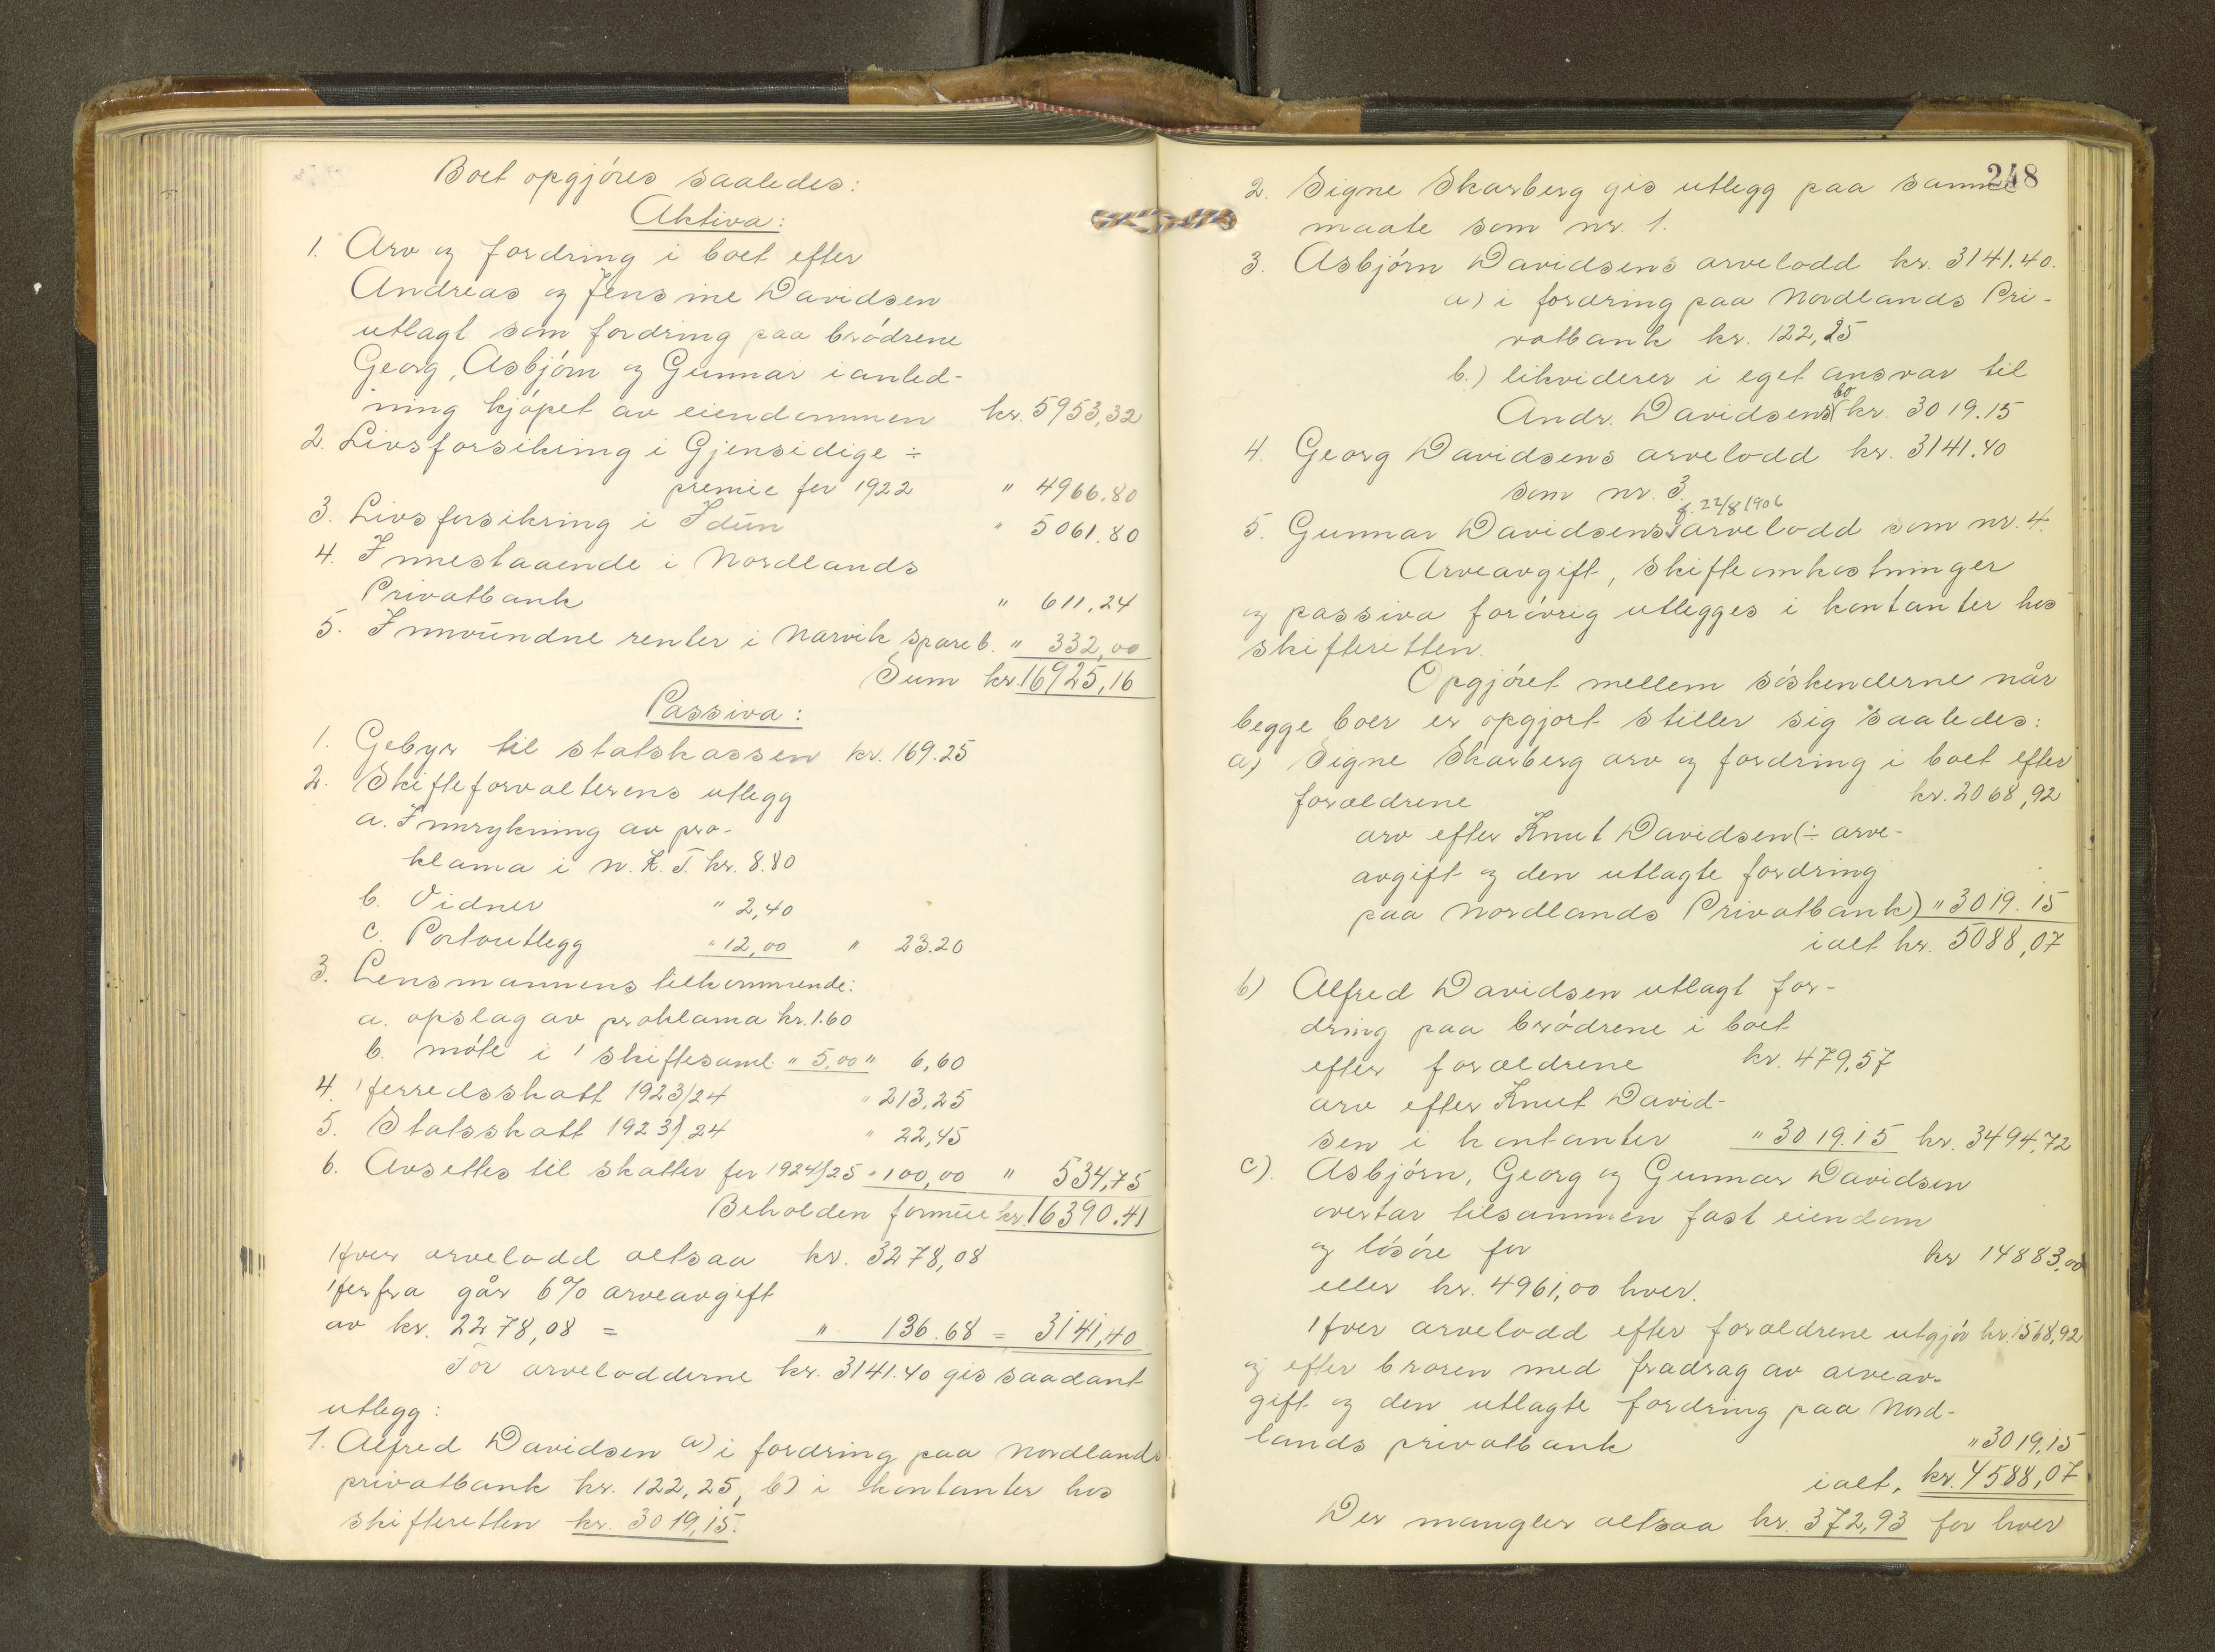 Boet opgjöres saaledes:
Aktiva:
1. Arv og fordring i boet efter
Andreas og Jensine Davidsen
utlagt som fordring paa brödrene
Georg, Asbjörn og Gunnar i anled-
ning kjöpet av eiendommen kr. 5953,32
2. Livsforsikring i Gjensidige ÷
premie for 1922 " 4966.80
3. Livsforsikring i Idun " 5061.80
4. Innestaaende i Nordlands
Privatbank " 611,24
5. Innvundne renter i Narvik spareb. " 332,00
Sum kr. 16925,16
Passiva:
1. Gebyr til statskassen kr. 169.25
2. Skifteforvalterens utlegg
a. Innrykning av pro-
klama i N. K. T. kr. 8.80
b. Vidner " 2,40
c. Portoutlegg " 12,00 " 23.20
3. Lensmannens tilkommende:
a. opslag av proklama kr. 1.60
b. möte i 1 skiftesaml. " 5,00 " 6,60
4. Herredsskatt 1923/24 " 213,25
5. Statsskatt 1923/24 " 22,45
6. Avsettes til skatter for 1924/25 " 100,00 " 534,75
Beholden formue kr. 16390.41
Hver arvelodd altsaa kr. 3278,08
Herfra går 6% arveavgift
av kr. 2278,08 = " 136.68 = 3141,40
For arveloddene kr. 3141.40 gis saadant
utlegg:
1. Alfred Davidsen a) i fordring paa Nordlands
privatbank kr. 122,25, b) i kontanter hos
skifteretten kr. 3019,15.
248
2. Signe Skarberg gis utlegg paa samme
maate som nr. 1.
3. Asbjörn Davidsens arvelodd kr. 3141.40.
a) i fordring paa Nordlands Pri-
vatbank kr. 122,25
b.) likviderer i eget ansvar til
Andr. Davidsens bo kr. 3019.15
4. Georg Davidsens arvelodd kr. 3141.40
som nr. 3.
f. 22/8 1906
5. Gunnar Davidsens arvelodd som nr. 4.
Arveavgift, skifteomkostninger
og passiva forövrig utlegges i kontanter hos
skifteretten.
Opgjöret mellem söskenderne når
begge boer er opgjort stiller sig saaledes:
a) Signe Skarberg arv og fordring i boet efter
forældrene kr. 2068,92
arv efter Knut Davidsen (÷ arve-
avgift og den utlagte fordring
paa Nordlands Privatbank) " 3019.15
ialt kr. 5088,07
b) Alfred Davidsen utlagt for-
dring paa brödrene i boet
efter forældrene kr. 479,57
arv efter Knut David-
sen i kontanter " 3019.15 kr. 3494,72
c). Asbjörn, Georg og Gunnar Davidsen
overtar tilsammen fast eiendom
og lösöre for kr 14883,00
eller kr. 4961,00 hver.
Hver arvelodd efter forældrene utgjör kr. 1568,92
og efter broren med fradrag av arveav-
gift og den utlagte fordring paa Nord-
lands privatbank " 3019,15
ialt, kr. 4588,07
Der mangler altsaa kr. 372,93 for hver